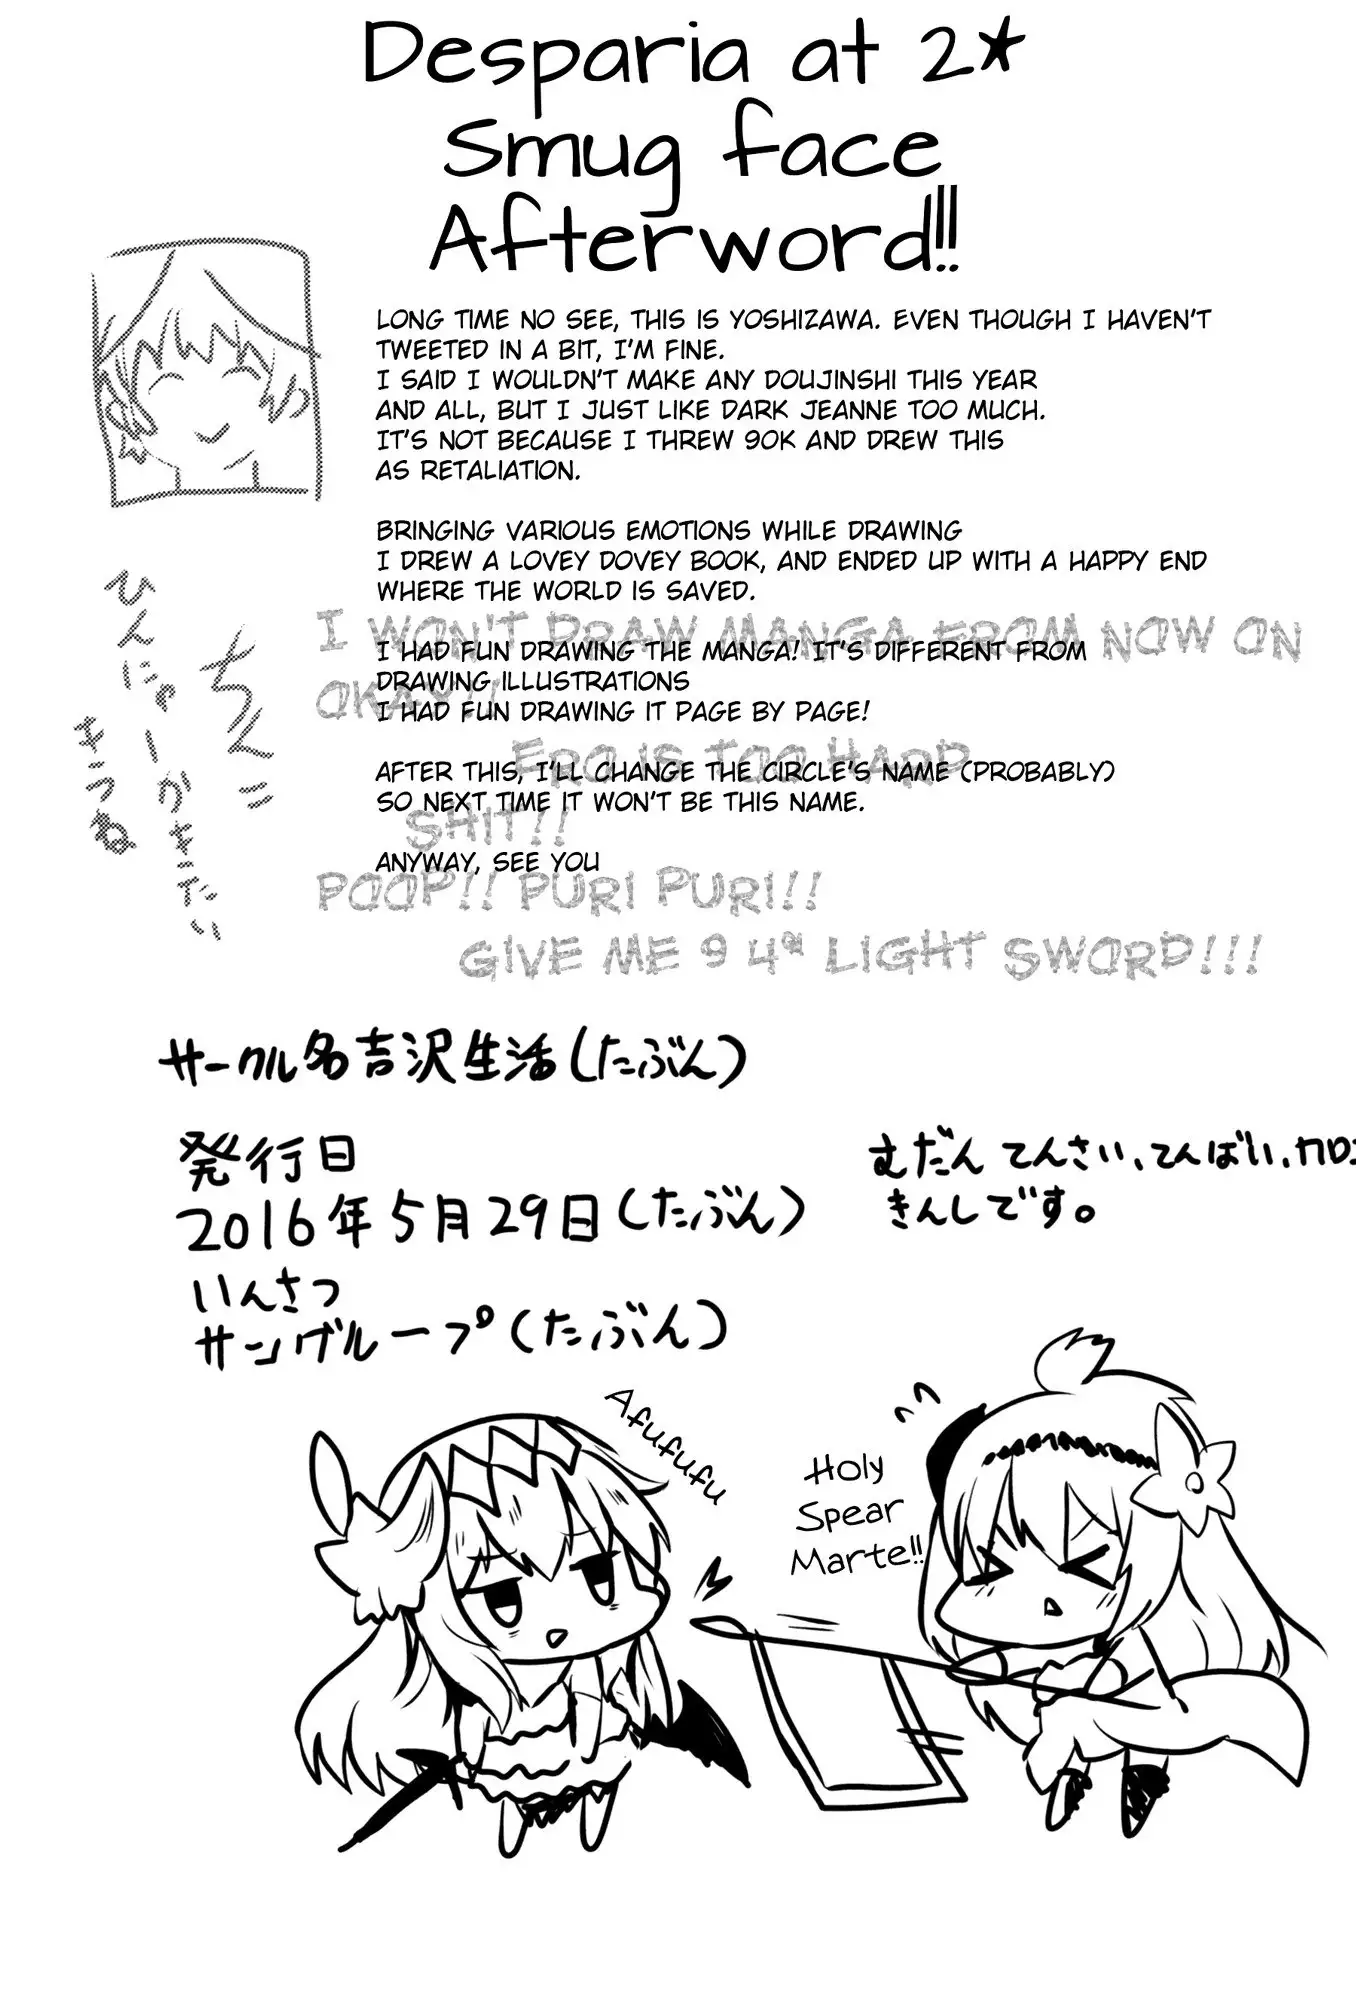 Desparia at 2*
Smug face
Afterword!!!
LONG TIME NO SEE, THIS IS YOSHIZAWA. EVEN THOUGH I HAVEN'T
TWEETED IN A BIT, I'M FINE.
I SAID I WOULDN'T MAKE ANY DOUJINSHI THIS YEAR
AND ALL, BUT I JUST LIKE DARK JEANNE TOO MUCH.
IT'S NOT BECAUSE I THREW 90K AND DREW THIS
AS RETALIATION.
BRINGING VARIOUS EMOTIONS WHILE DRAWING
I DREW A LOVEY DOVEY BOOK, AND ENDED UP WITH A HAPPY END
WHERE THE WORLD IS SAVED.
I HAD FUN DRAWING THE MANGA! IT'S DIFFERENT FROM
DRAWING ILLUSTRATIONS
I HAD FUN DRAWING IT PAGE BY PAGE!
AFTER THIS, I'LL CHANGE THE CIRCLE'S NAME (PROBABLY)
SO NEXT TIME IT WON'T BE THIS NAME.
ANYWAY, SEE YOU
I WON'T DRAW MANGA FROM NOW ON
OKAY!!
ERO IS TOO HARD
SHIT!!
POOP!! PURI PURI!!
GIVE ME 9 4* LIGHT SWORD!!!
ちんこ
ひんにゅーかきたい
きつね
サークル名吉沢生活(たぶん)
発行日
2016年5月29日(たぶん)
いんさつ
サングループ(たぶん)
むだん てんさい、てんばい、カロエ
きんしです。
Afufufu
Holy
Spear
Marte!!